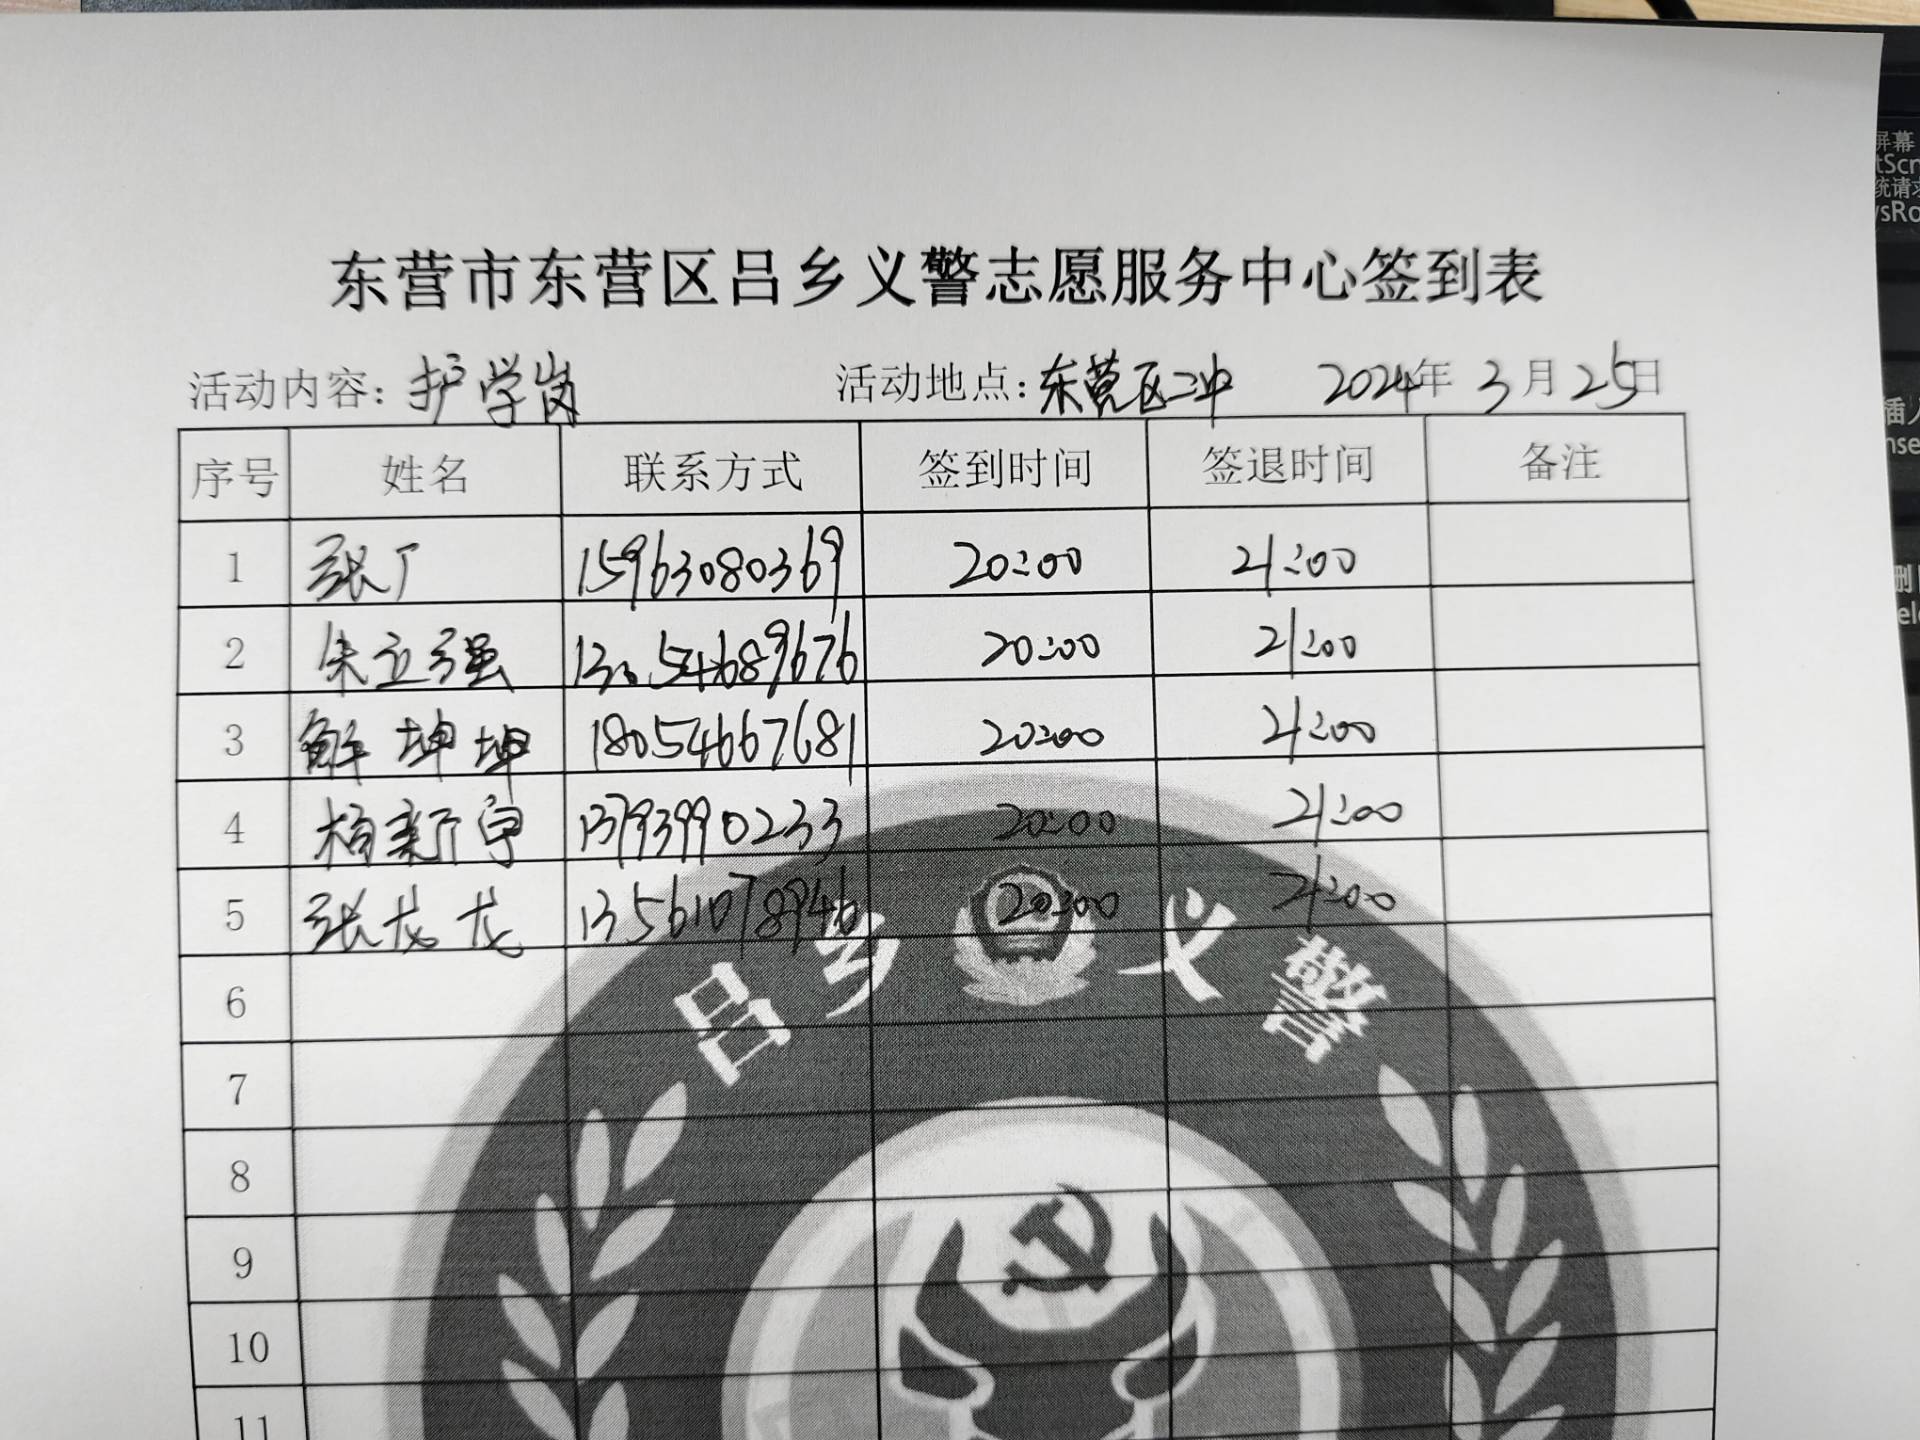 东营市东营区吕乡义警志愿服务中心签到表
活动内容：护学岗 活动地点：东营区二中 2024年3月25日
序号 姓名 联系方式 签到时间 签退时间 备注
1 张广 15963080369 20:00 21:00
2 朱立强 13054689676 20:00 21:00
3 解坤坤 18054667681 20:00 21:00
4 杨新宇 13793990233 20:00 21:00
5 张龙龙 13561078946 20:00 21:00
6
7
8
9
10
11
吕乡义警
屏幕
tScr
统请求
ysRo
插入
nse
删
ele